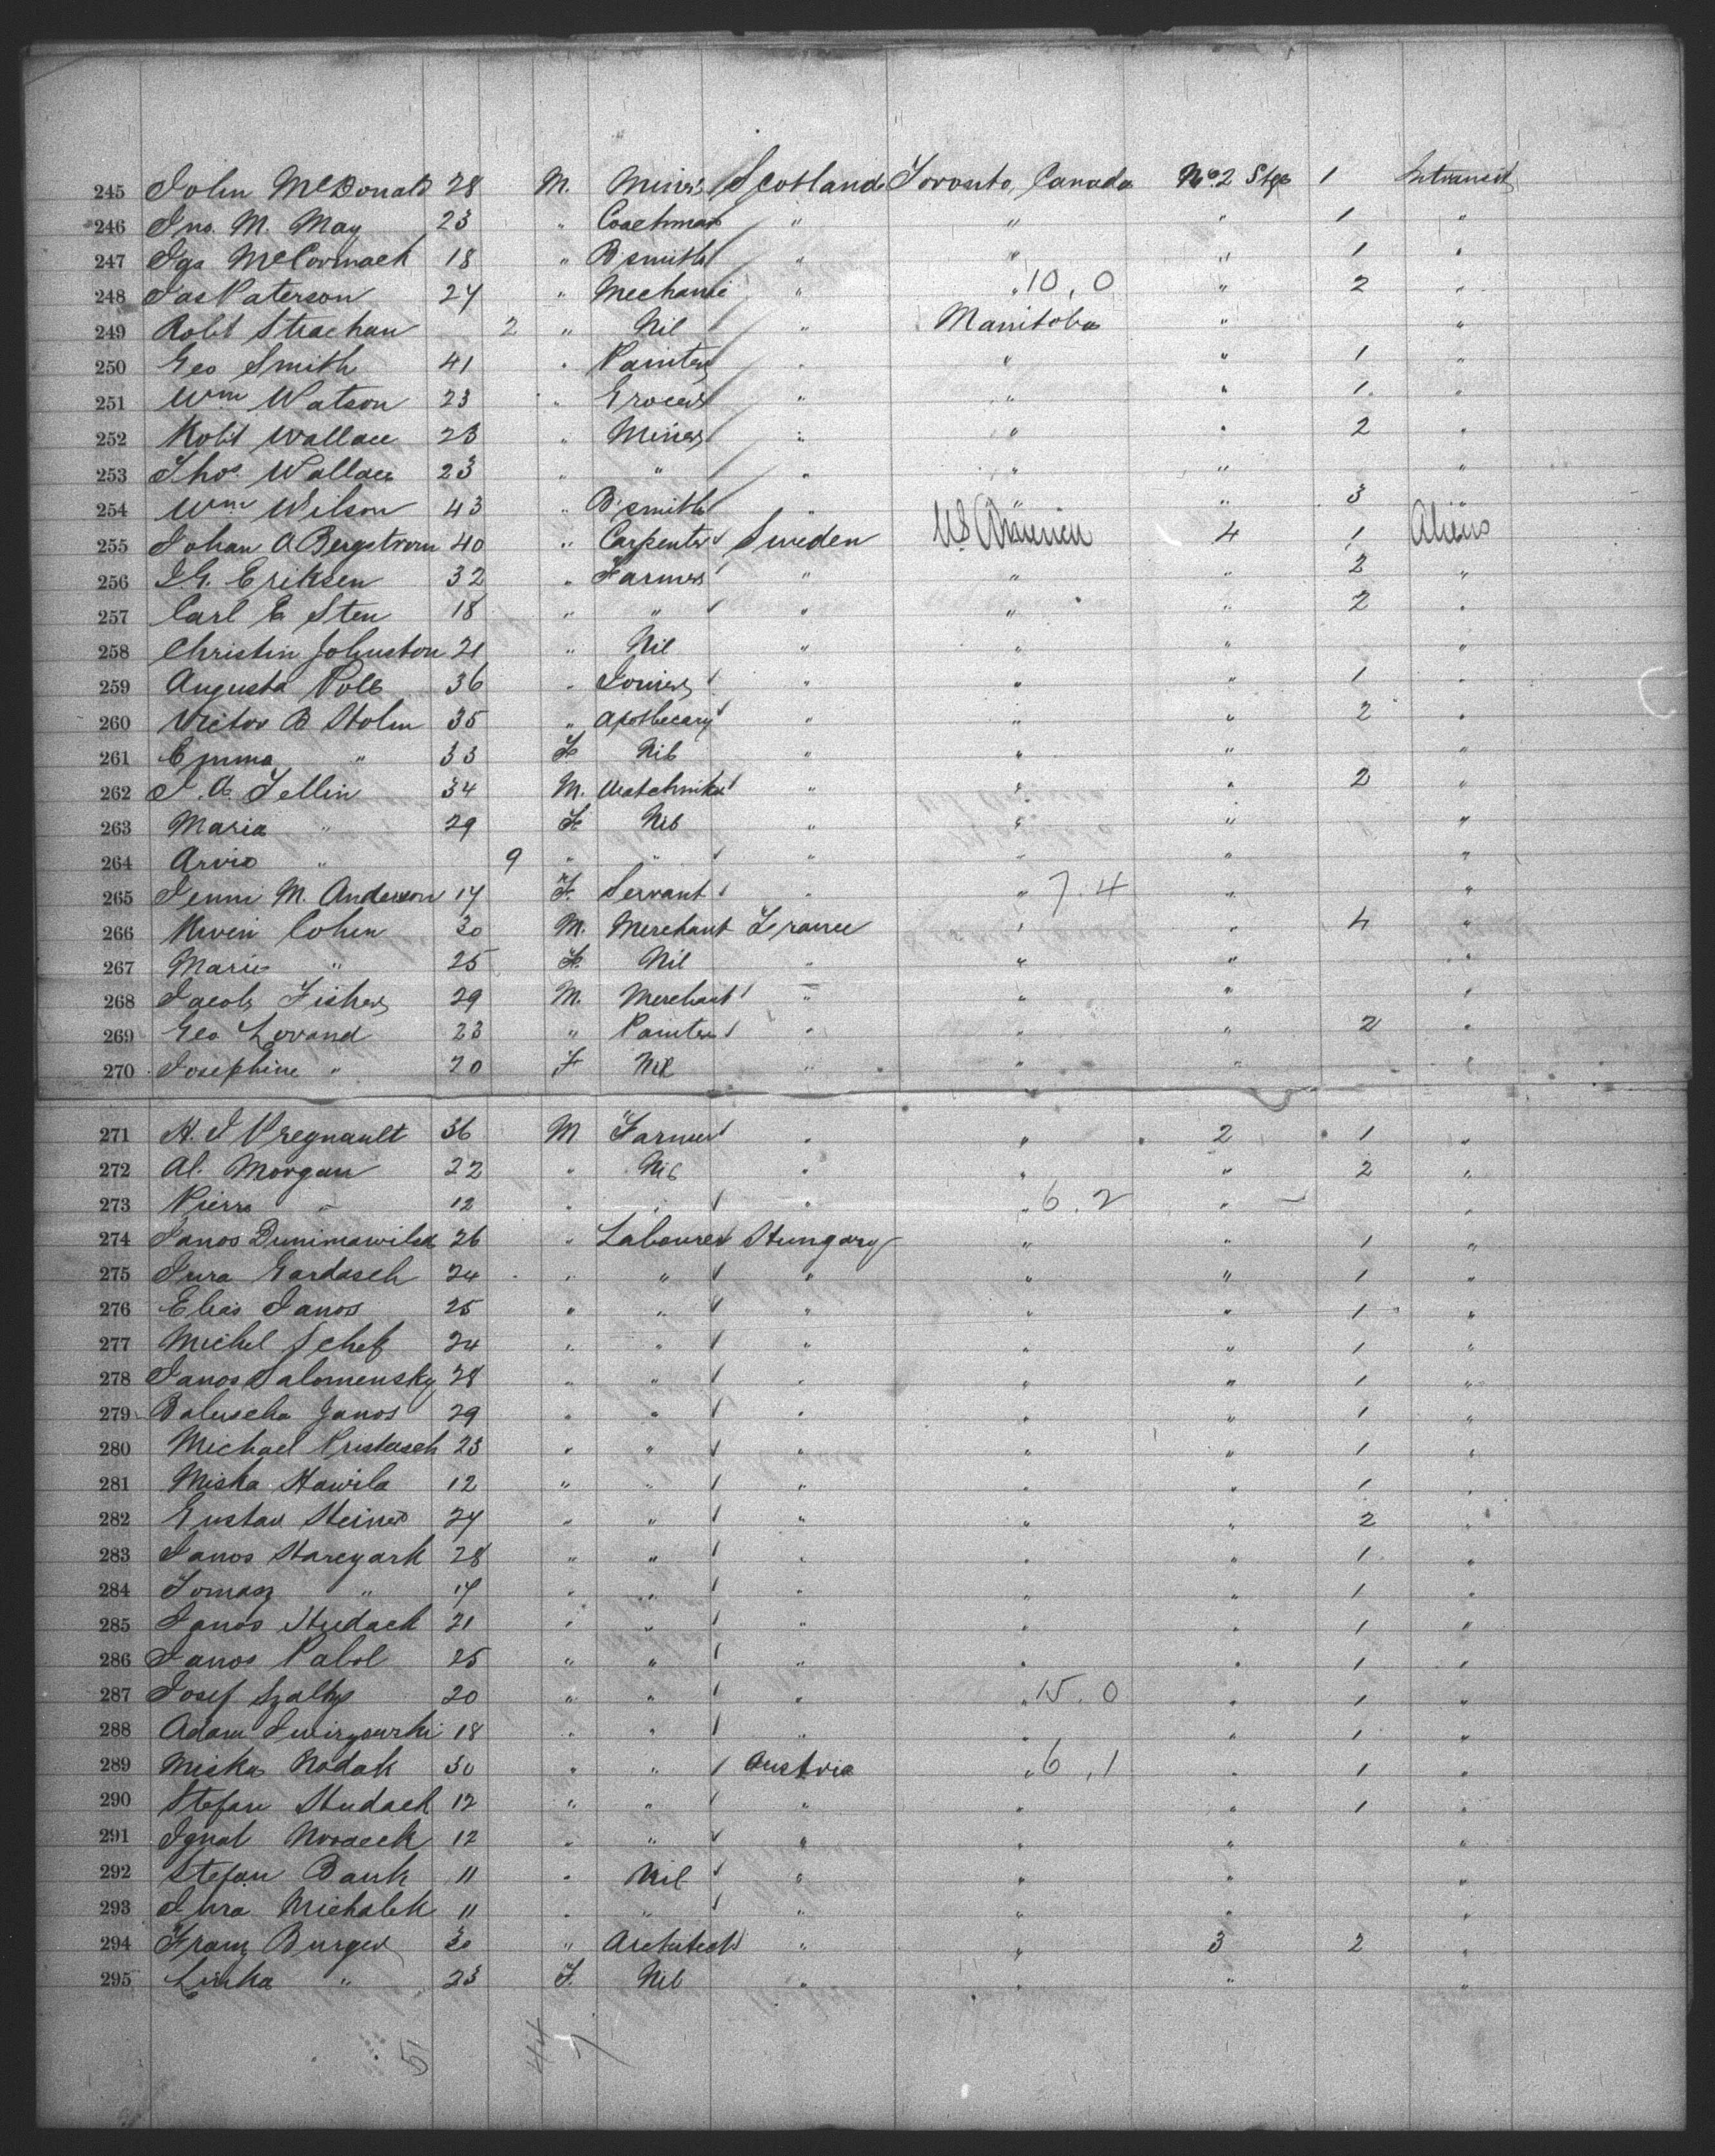 245 John McDonald 28 M. Miner Scotland Toronto, Canada No. 2 Stge 1 Intransit
246 Jno. M. May 23 " Coachman " " " 1 "
247 Jas McCormack 18 " Bsmith " " " 1 "
248 Jas Paterson 24 " Mechanic " " 10,0 " 2 "
249 Robt Strachan 2 " Nil " Manitoba " "
250 Geo Smith 41 " Painter " " " 1 "
251 Wm Watson 23 " Grocer " " " 1 "
252 Robt Wallace 23 " Miner " " " 2 "
253 Thos. Wallace 23 " " " " " "
254 Wm Wilson 43 " B,smith " " " 3 "
255 Johan A Bergstrom 40 " Carpenter Sweden US America 4 1 Aliens
256 Eriksen 32 " Farmer " " " 2 "
257 Carl E Sten 18 " " " " " 2 "
258 Christin Johnston 21 " Nil " " " "
259 Augusta 36 " Joiner " " " 1 "
260 Victor B Holm 35 " Apothecary " " " 2 "
261 Emma " 33 F Nil " " " "
262 J. A. Tellin 34 M. Watchmkr " " " 2 "
263 Maria " 29 F Nil " " " "
264 " 9 " " " " " "
265 Jenni M. Anderson 14 F. Servant " " 7.4 " "
266 Cohen 30 M. Merchant France " " 4 "
267 Marie " 25 F. Nil " " " "
268 Jacob Fisher 29 M. Merchant " " " "
269 Geo 23 " Painter " " " 2 "
270 Josephine " 20 F Nil " " " "
271 H. J Pregnault 36 M Farmer " " 2 1 "
272 Al. Morgan 22 " Nil " " " 2 "
273 Pierre " 12 " " " " 6.2 " "
274 Janos 26 " Labourer Hungary " " 1 "
275 Jura Gardasch 24 " " " " " 1 "
276 Elias Janos 25 " " " " " 1 "
277 Michel 24 " " " " " 1 "
278 Janos Salomensky 28 " " " " " 1 "
279 Baluscha Janos 29 " " " " " 1 "
280 Michael 23 " " " " " 1 "
281 Miska Hawila 12 " " " " " 1 "
282 Gustav Steiner 24 " " " " " 2 "
283 Janos 28 " " " " " 1 "
284 Tomasz " 17 " " " " " 1 "
285 Janos Hudack 21 " " " " " 1 "
286 Janos Pabol 25 " " " " " 1 "
287 Josef 20 " " " " 15.0 " 1 "
288 Adam 18 " " " " " 1 "
289 Miska Nodak 30 " " Austria " 6,1 " 1 "
290 Stefan Hudack 12 " " " " " 1 "
291 Ignat 12 " " " " " "
292 Stefan Bank 11 " Nil " " " "
293 Jura Michalek 11 " " " " " "
294 Franz Burger 30 " Architect " " 3 2 "
295 " 23 F. Nil " " " "
51 44 7